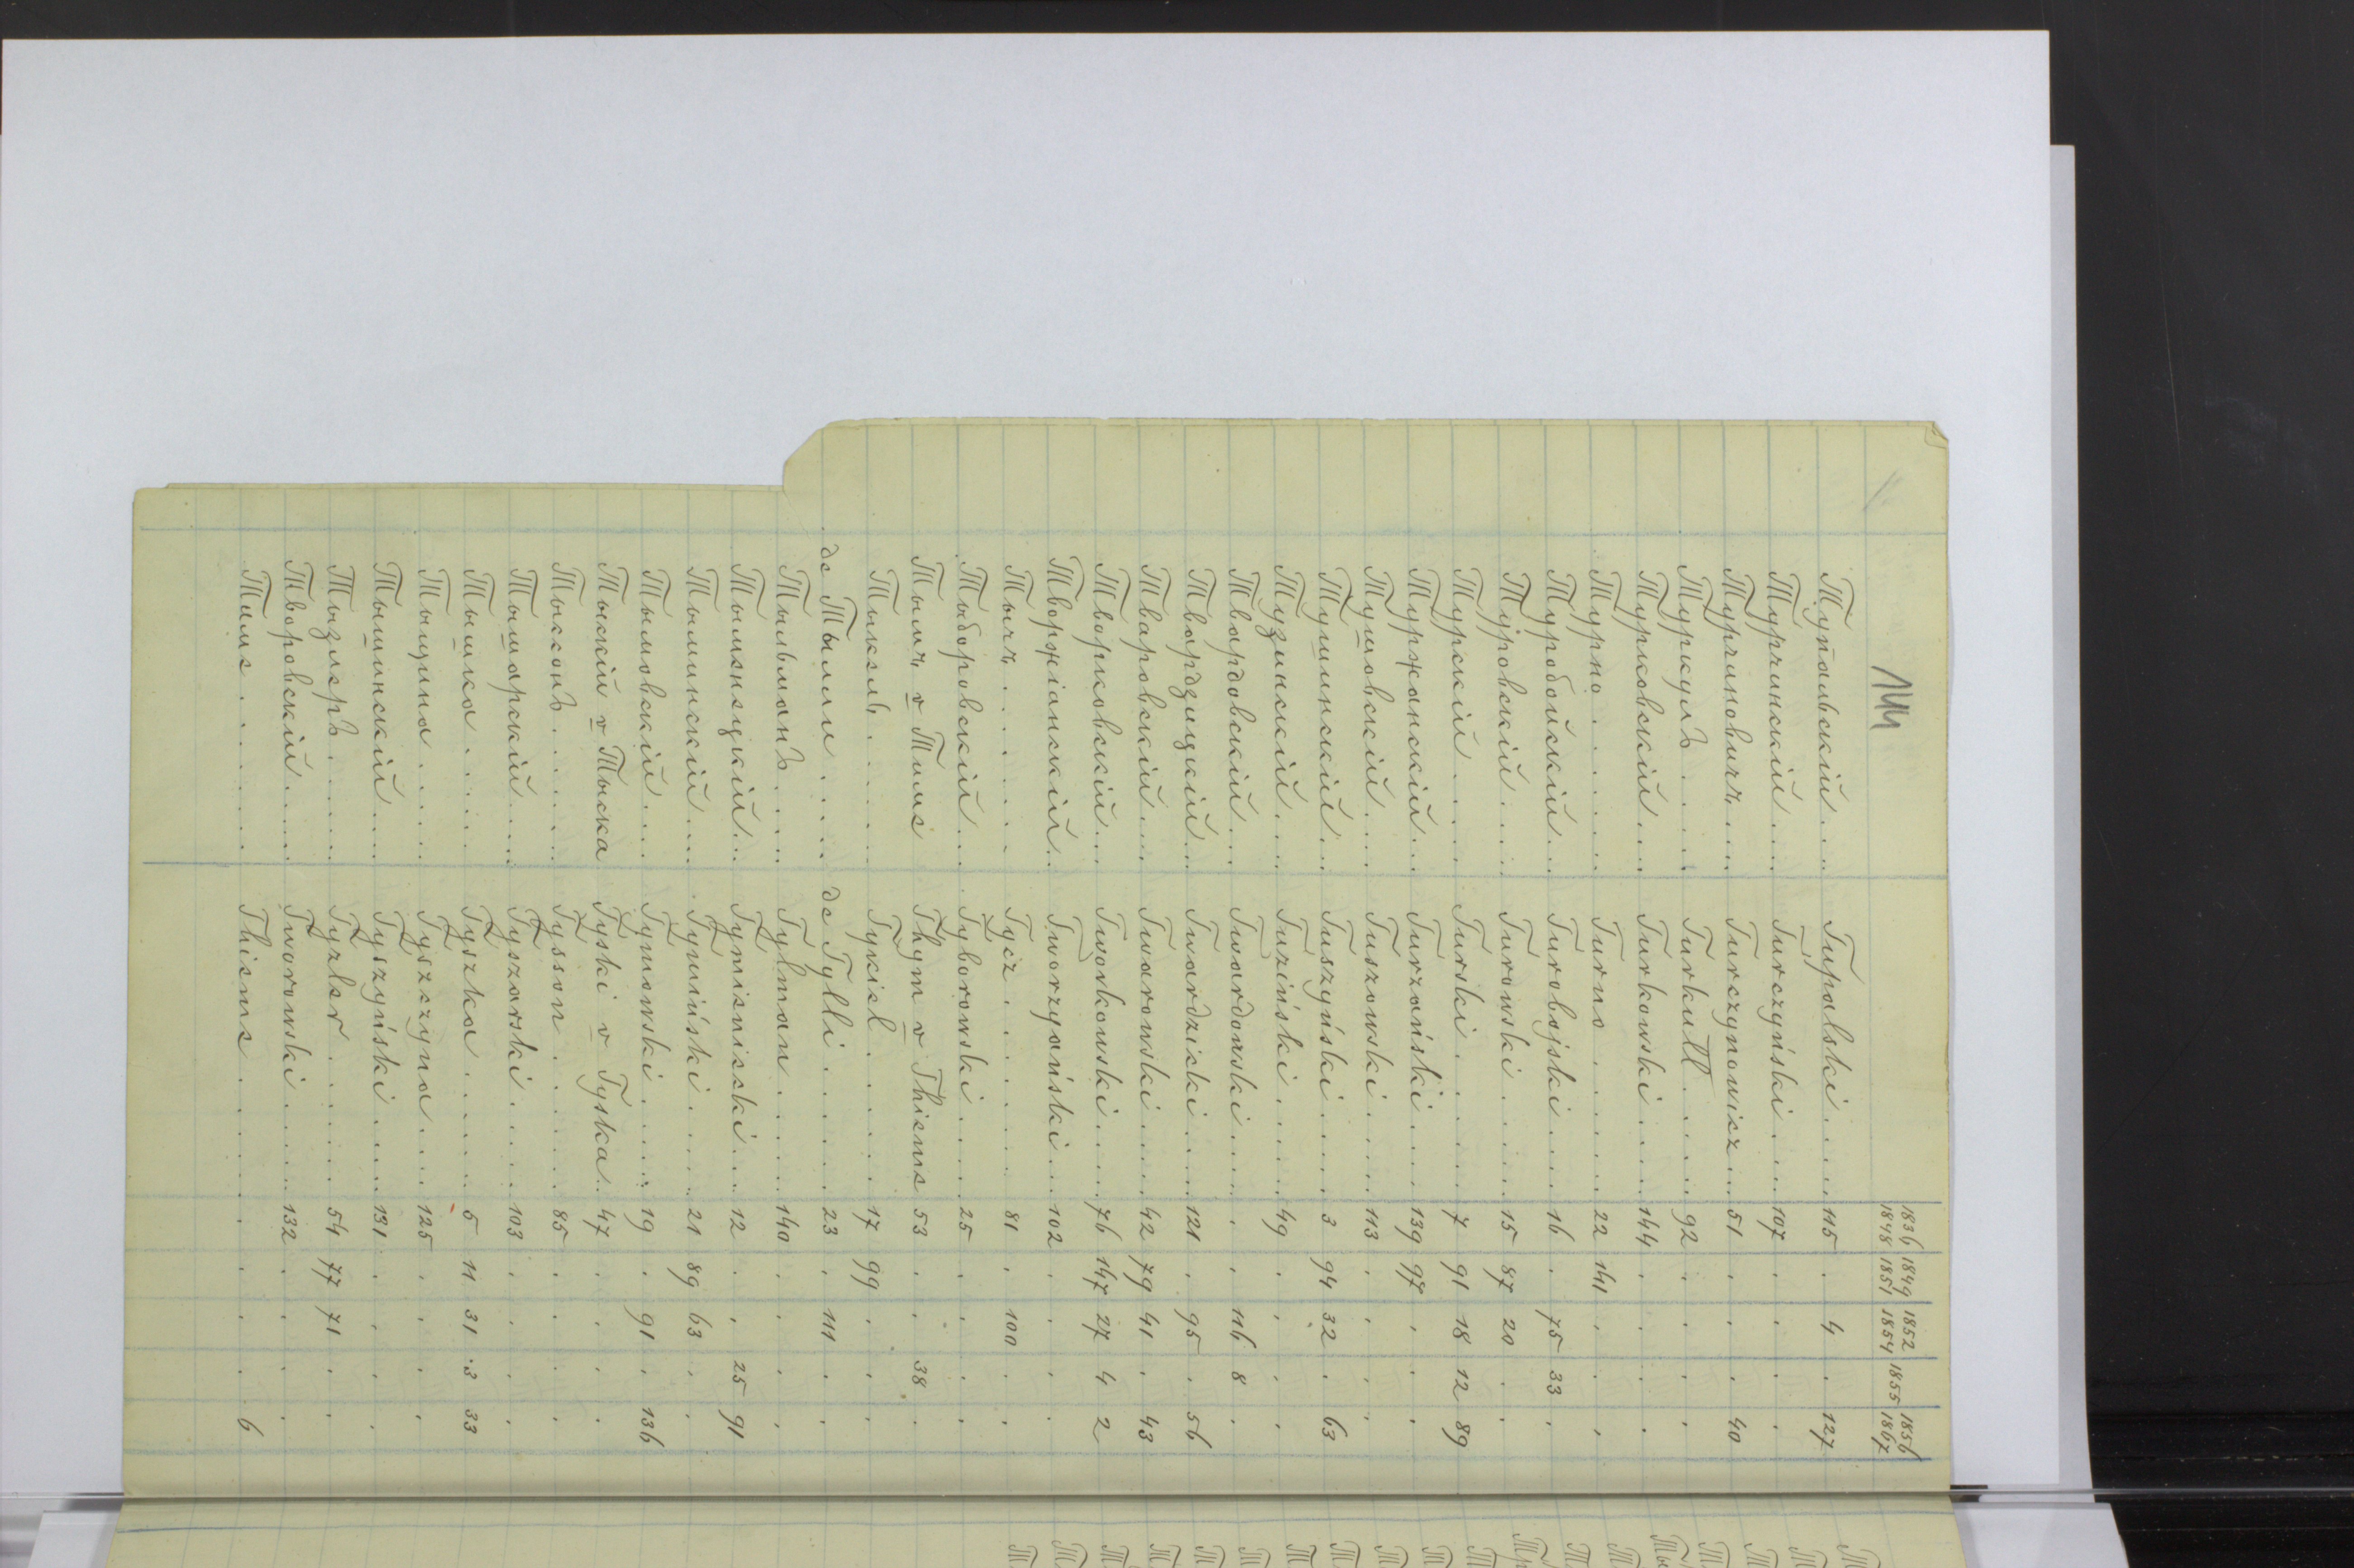 144
1836 1848 1849 1851 1852 1854 1855 1856 1867
Тупальскій . . . Tupalski . . . . 115 . 4 . 127
Турчинскій . . . Turczyński . . . 107 . . . .
Турчиновичъ . . . Turczynowicz . . . 51 . . . 40
Туркулъ . . . . Turkull . . . . 92 . . . .
Турковскій . . . Turkowski . . . . 144 . . . .
Турно . . . . . Turno . . . . . 22 141 . . .
Туробойскій . . . Turobojski . . . 16 . 75 33 .
Туровскій . . . . Turowski . . . . 15 87 20 . .
Турскій . . . . Turski . . . . . 7 91 18 12 89
Туржанскій . . . Turzański . . . . 139 97 . . .
Тушовскій . . . . Tuszowski . . . . 113 . . . .
Тушинскій . . . Tuszyński . . . . 3 94 32 . 63
Тузинскій . . . . Tuziński . . . . 49 . . . .
Твардовскій . . . Twardowski . . . . . . 116 8 .
Твардзицкій . . . Twardzicki . . . 121 . 95 . 56
Тваровскій . . . Twarowski . . . . 42 79 41 . 43
Творковскій . . . Tworkowski . . . . 76 147 27 4 2
Творжіанскій . . Tworzyański . . . 102 . . . .
Тычъ . . . . . . Tycz . . . . . . 81 . 100 . .
Тыборовскій . . . Tyborowski . . . . 25 . . . .
Тымъ v Тиме Thym v Thieme 53 . . 38 .
Тыкель . . . . . Tykiel . . . . . 17 99 . . .
де Тылли . . . . de Tylli . . . . . 23 . 111 . .
Тыльманъ . . . . Tylman . . . . . 140 . . . .
Тымѣнецкій . . . Tymieniecki . . . 12 . . 25 91
Тыминскій . . . . Tymiński . . . . 21 89 63 . .
Тымовскій . . . . Tymowski . . . . 19 . 91 . 136
Тыскій v Тыска Tyski v Tyska . . 47 . . . .
Тыссонъ . . . . . Tysson . . . . . 85 . . . .
Тышарскій . . . . Tyszarski . . . . 103 . . . .
Тышка . . . . . Tyszka . . . . . 5 11 31 3 33
Тыщина . . . . . Tyszczyna . . . 125 . . . .
Тышинскій . . . . Tyszyński . . . . 131 . . . .
Тызлеръ . . . . . Tyzler . . . . . 54 77 71 . .
Творовскій . . . . Tworowski . . . . 132 . . . .
Тиме . . . . . . Thieme . . . . . . . . . 6